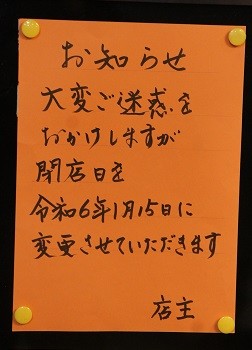 お知らせ
大変ご迷惑を
おかけしますが
閉店日を
令和6年1月15日に
変更させていただきます
店主